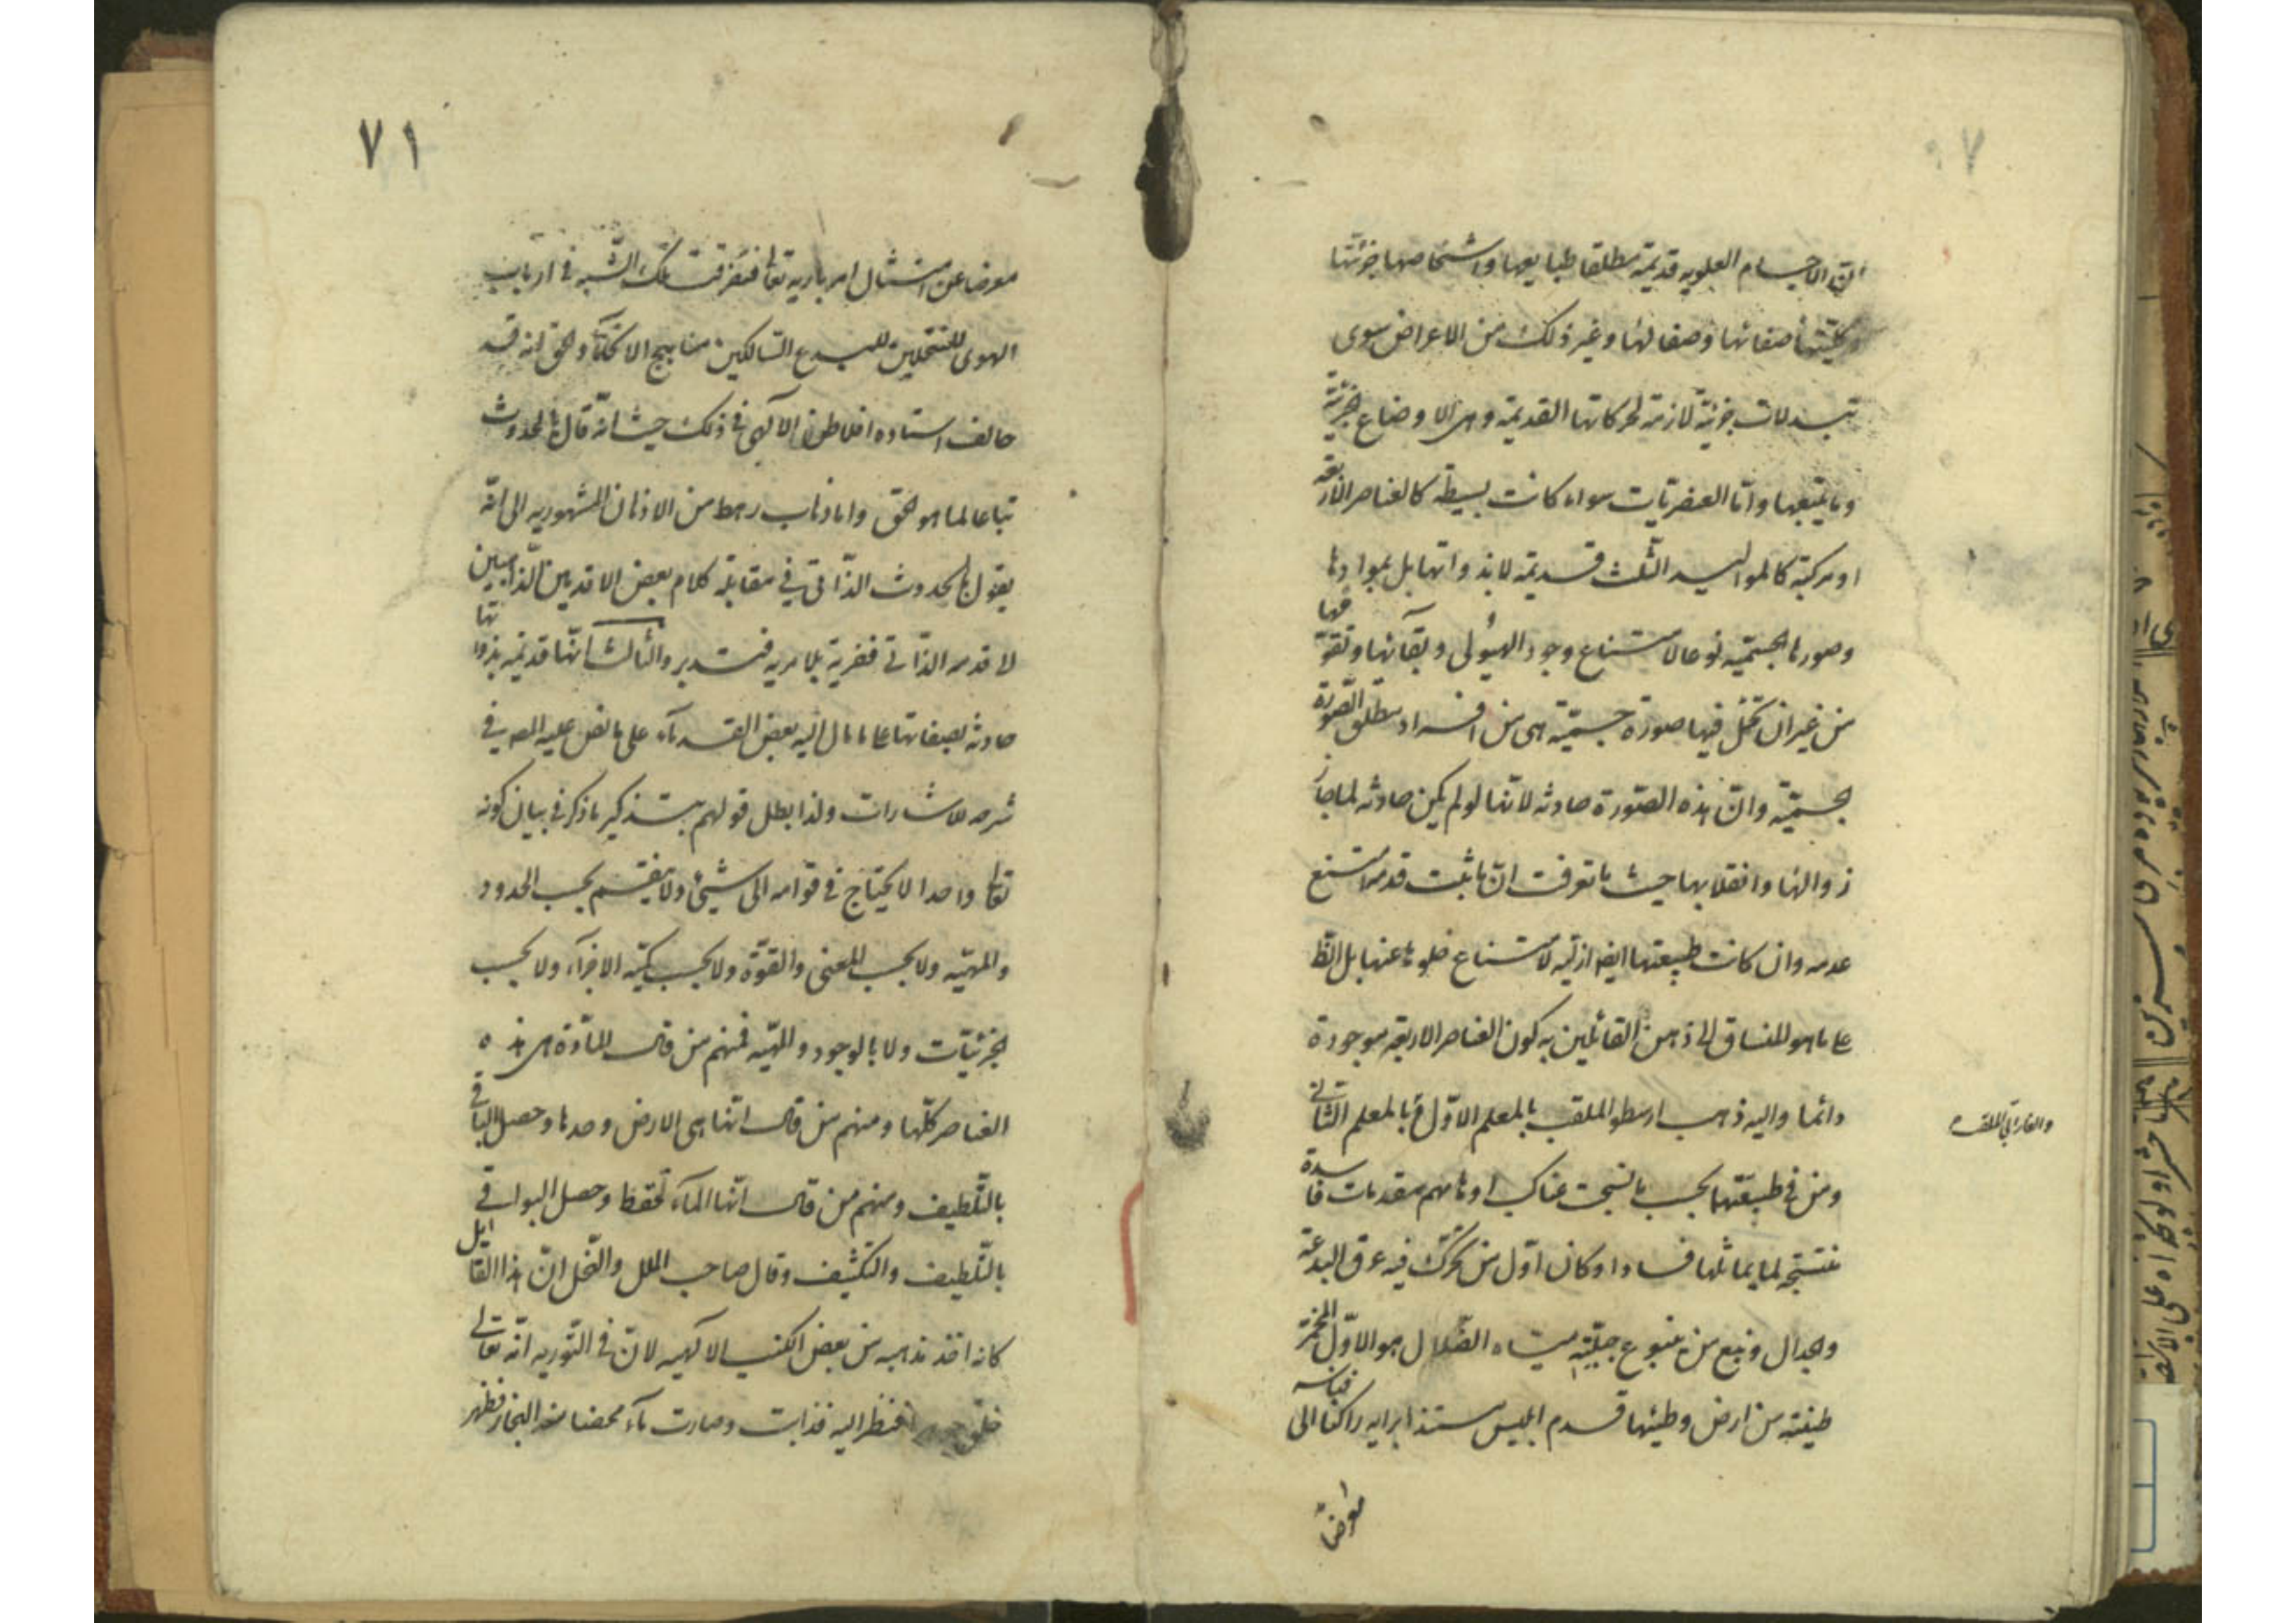 ان الاجسام العلويه قديمة مطلقا طبايعها واشخاصها جزئيتها
وكليتها صفاتها وصفالها وغير ذلك من الاعراض سوى
تبدلات جزئية لازمة لحركاتها القديمة وهى الاوضاع الجزئية
وما يتبعها وامّا العنصريّات سواء كانت بسيطة كالعناصر الاربعة
او مركبة كالمواليد الثلث قديمة لا بذواتها بل بموادها
وصورها الجسميّه نوعا لامتناع وجود الهيولى وبقآئها وتقوّمها
من غير ان تحل فيها صورة جسميّة هى من افراد مطلق الصّورة
الجسميّة وانّ هذه الصّورة حادثه لانّها لو لم يكن حادثه لما جاز
زوالها وانقلابها حيث ما تعرفت انّ ما ثبت قدمه امتنع
عدمه وان كانت طبيعتها ايضا ازليّه لامتناع خلوها عنها بل الظ
على ما هو المنساق الى ذهن القائلين به كون العناصر الاربعة موجودة
دائما واليه ذهب ارسطو الملقب بالمعلم الاوّل بالمعلم الثانى
والفارابى الملقب
ومن فى طبيعتهما بحسب ما نسجت عناكب اوهامهم مقدمات فاسدة
منتجة لما يماثلها فسادا وكان اوّل من تحرّك فيه عرق البدعة
والجدال ونبع من ينبوع جبلّته مياه الضّلال هو الاوّل المخمرة
طينته من ارض وطئها قدم ابليس مستبدا برايه راكنا الى قياسه
معرضاً
٧١
معرضا عن امتثال امر باريه تعالى فتفرقت تلك الشّبه فى ارباب
الهوى المنتحلين للبدع السّالكين مناهج الانكآء والحق انه قد
خالف استاده افلاطون الآلهى فى ذلك حيث انّه قال بالحدوث
تباعا لما هو الحق واما ذهاب رهط من الاذهان المشهوريه الى انّه
يقول بالحدوث الذّاتى فى مقابلة كلام بعض الاقدمين الذّاهبين
لا قدمه الذّاتى ففرية بلا مريه فتدبر والثالث انّها قديمه بذواتها
حادثه بصفاتها على ما مال اليه بعض القدمآء على ما نص عليه المص فى
شرحه للاشارات ولذا بطل قولهم بتذكير ما ذكر فى بيان كونه
تعالى واحدا لا يحتاج فى قوامه الى شيئ ولا ينقسم بحسب الحدود
والمهيّه ولا بحسب المعنى والقوّة ولا بحسب كميّه الاجزآء ولا بحسب
الجزئيّات ولا بالوجود والمهيّه فمنهم من قال المادّة هى هذه
العناصر كلّها ومنهم من قال انّها هى الارض وحدها وحصل الباقى
بالتّلطيف ومنهم من قال انّها المآء فقط وحصل البواقى
بالتّلطيف والتكثيف وقال صاحب الملل والنّحل انّ هذا القائل
كانه اخذ مذهبه من بعض الكتب الالهيه لانّ فى التّوريه انّه تعالى
خلق فنظر اليه فذابت وصارت مآء محضا منه البخار فظهر